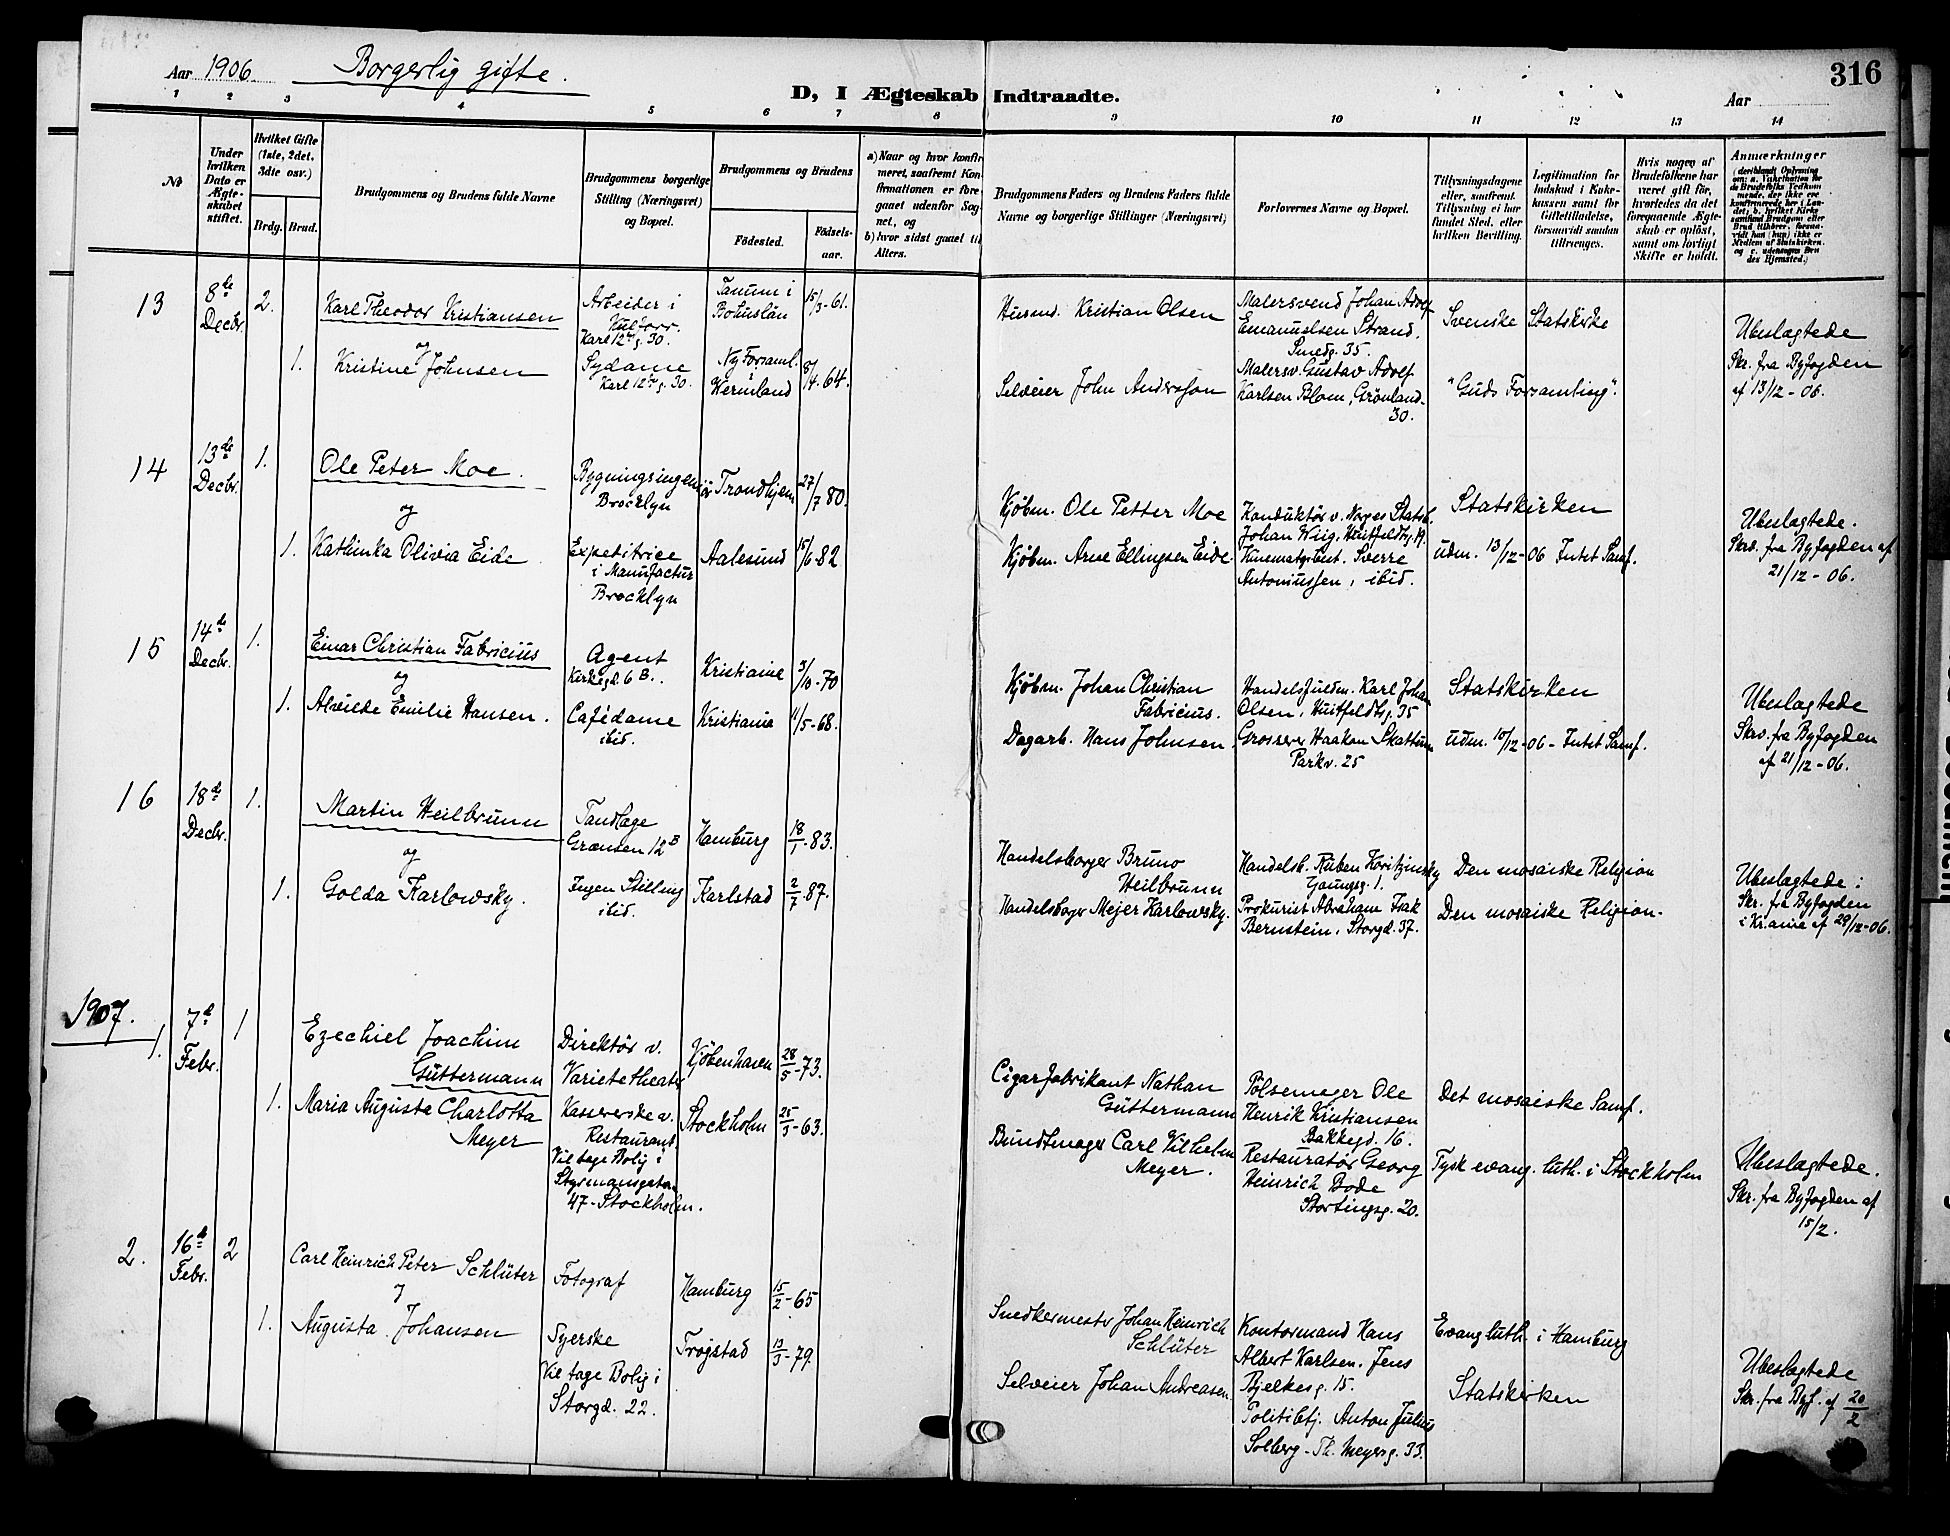 Aar 1906. Borgerlig gifte.
D, I Ægteskab Indtraadte.
Aar
316
1 2 3 4 5 6 7 8 9 10 11 12 13 14
No
Under hvilken Dato er Ægteskabet stiftet.
Hvilket Gifte (1ste, 2det, 3die osv.)
Brdg. Brud.
Brudgommens og Brudens fulde Navne
Brudgommens borgerlige Stilling (Næringsvei) og Bopæl.
Brudgommens og Brudens
Fødested.
Fødselsaar.
a) Naar og hvor konfirmeret, saafremt Konfirmationen er foregaaet udenfor Sognet, og
b) hvor sidst gaaet til Alters.
Brudgommens Faders og Brudens Faders fulde Navne og borgerlige Stillinger (Næringsvei)
Forlovernes Navne og Bopæl.
Tillysningsdagene eller, saafremt Tillysning ei har fundet Sted, efter hvilken Bevilling.
Legitimation for Indskud i Enkekassen samt for Giftetilladelse, forsaavidt saadan tiltrænges.
Hvis nogen af Brudefolkene har været gift før, hvorledes da det foregaaende Ægteskab er opløst, samt om lovligt Skifte er holdt.
Anmærkninger
13
8de Decbr.
2.
Karl Theodor Kristiansen
og
Arbeider i
Karl 12tes g. 30.
Tanum i Bohuslän
15/3-61.
Husmd. Kristian Olsen
Malersvend Johan Adolf Emanuelsen Strand. Smedg. 35.
Svenske Statskirke
1.
Kristine Johnsen
Sydame
Karl 12tes g. 30.
Ny Forsaml. Wermland
8/4-64.
Selveier John Andersson
Malersv. Gustav Adolf Karlsen Blom, Grönland. 30.
"Guds Forsamling".
Ubeslagtede
Skr. fra Byfogden
af 13/12-06.
14
13de Decbr.
1.
Ole Peter Moe.
og
Bygningsingeniör
Brocklyn
Trondhjem
27/7 80.
Kjøbm. Ole Petter Moe
Konduktör v. Norges Statsb. Johan Wiig, Huitfeldtsg. 19.
Statskirken
1.
Kathinka Olivia Eide
Expeditrice
i Manufactur
Brocklyn
Aalesund
15/6 82
Kjøbm. Arne Ellingsen Eide
Sverre Antoniussen, ibid.
udm. 13/12-06 Intet Samf.
Ubeslagtede.
Skr. fra Byfogden af
21/12-06.
15
14de Decbr.
1.
Einar Christian Fabricius
og
Agent
Kirkegd. 6 B.
Kristiania
3/10-70
Kjøbm. Johan Christian Fabricius.
Handelsfuldm. Karl Johan Olsen, Huitfeldtsg. 35
Statskirken
1.
Alvilde Emilie Hansen.
Cafédame
ibid.
Kristiania
11/5-68.
Dagarb. Hans Johnsen
Grosserer Haakon Skattum
Parkv. 25
udm. 10/12-06 - Intet Samf.
Ubeslagtede
Skr. fra Byfogden
af 21/12-06.
16
18de Decbr.
1.
Martin Heilbrunn
og
Tandlæge
Grænsen 12 B
Hamburg
18/1-83.
Handelsborger Bruno Heilbrunn
Handelsb. Ruben Koritzinsky
Youngsg. 1.
Den mosaiske Religion
1.
Golda Karlowsky.
Ingen Stilling
ibid.
Karlstad
2/7-87.
Handelsborger Mejer Karlowsky.
Prokurist Abraham Isak Bernstein, Storgd. 37.
Den mosaiske Religion.
Ubeslagtede:
Skr. fra Byfogden
i Kr.ania af 29/12-06.
1907.
1.
7d Febr.
1
Ezechiel Joachim Güttermann
Direktör v.
Varietetheater
Kjøbenhavn
28/5-73.
Cigarfabrikant Nathan Güttermann
Pölsemager Ole Henrik Kristiansen
Bakkegd. 16.
Det mosaiske Samf.
1.
Maria Augusta Charlotta Meyer
Kassererske v. Restaurant.
Vil tage Bolig i
Styrmansgatan
47-Stockholm.
Stockholm
25/3-63.
Bundtmager Carl Vilhelm Meyer.
Restauratör Georg Heinrich Bode
Stortingsg. 20.
Tysk evang. luth. i Stockholm
Ubeslagtede.
Skr. fra Byfogden af
15/2.
2.
16d Febr.
2
Carl Heinrich Peter Schlüter
og
Fotograf
Hamburg
15/2-65
Snedkermester Johan Heinrich Schlüter
Kontormand Hans Albert Karlsen, Jens Bjelkesg. 15.
Evang luth. i Hamburg
1.
Augusta Johansen
Syerske
Vil tage Bolig i
Storgd. 22.
Trøgstad
13/3-79.
Selveier Johan Andreasen
Politibtj. Anton Julius Solberg - Th. Meyersg. 33.
Statskirken
Ubeslagtede
Skr. fra Byf. af 20/2